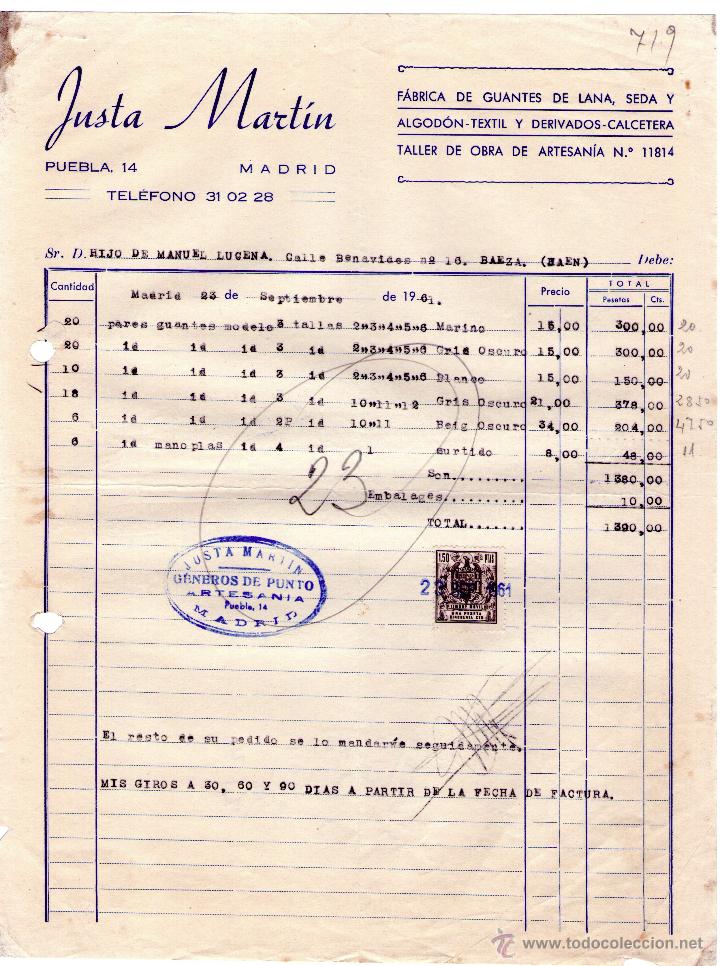 719
Justa Martín
PUEBLA, 14 MADRID
TELÉFONO 31 02 28
FÁBRICA DE GUANTES DE LANA, SEDA Y
ALGODÓN-TEXTIL Y DERIVADOS-CALCETERA
TALLER DE OBRA DE ARTESANÍA N.º 11814
Sr. D. HIJO DE MANUEL LUCENA. Calle Benavides nº 16. BAEZA. (JAEN) Debe:
Cantidad Precio TOTAL
Pesetas Cts.
Madrid 23 de Septiembre de 1961.
20 pares guantes modelo 3 tallas 2"3"4"5"6 Marino 15,00 300,00 20
20 id id id 3 id 2"3"4"5"6 Gris Oscuro 15,00 300,00 20
10 id id id 3 id 2"3"4"5"6 Blanco 15,00 150,00 20
18 id id id 3 id 10"11"12 Gris Oscuro 21,00 378,00 2850
6 id id id 2P id 10"11 Beig Oscuro 34,00 204,00 4750
6 id manoplas id 4 id 1 surtido 8,00 48,00 11
Son......... 1380,00
23
Embalages.......... 10,00
TOTAL....... 1390,00
JUSTA MARTIN
GÉNEROS DE PUNTO
ARTESANIA
Puebla, 14
MADRID
1,50 PTAS
TIMBRE MOVIL
UNA PESETA
CINCUENTA CTS
961
El resto de su pedido se lo mandarée seguidamente.
MIS GIROS A 30, 60 Y 90 DIAS A PARTIR DE LA FECHA DE FACTURA.
www.todocoleccion.net